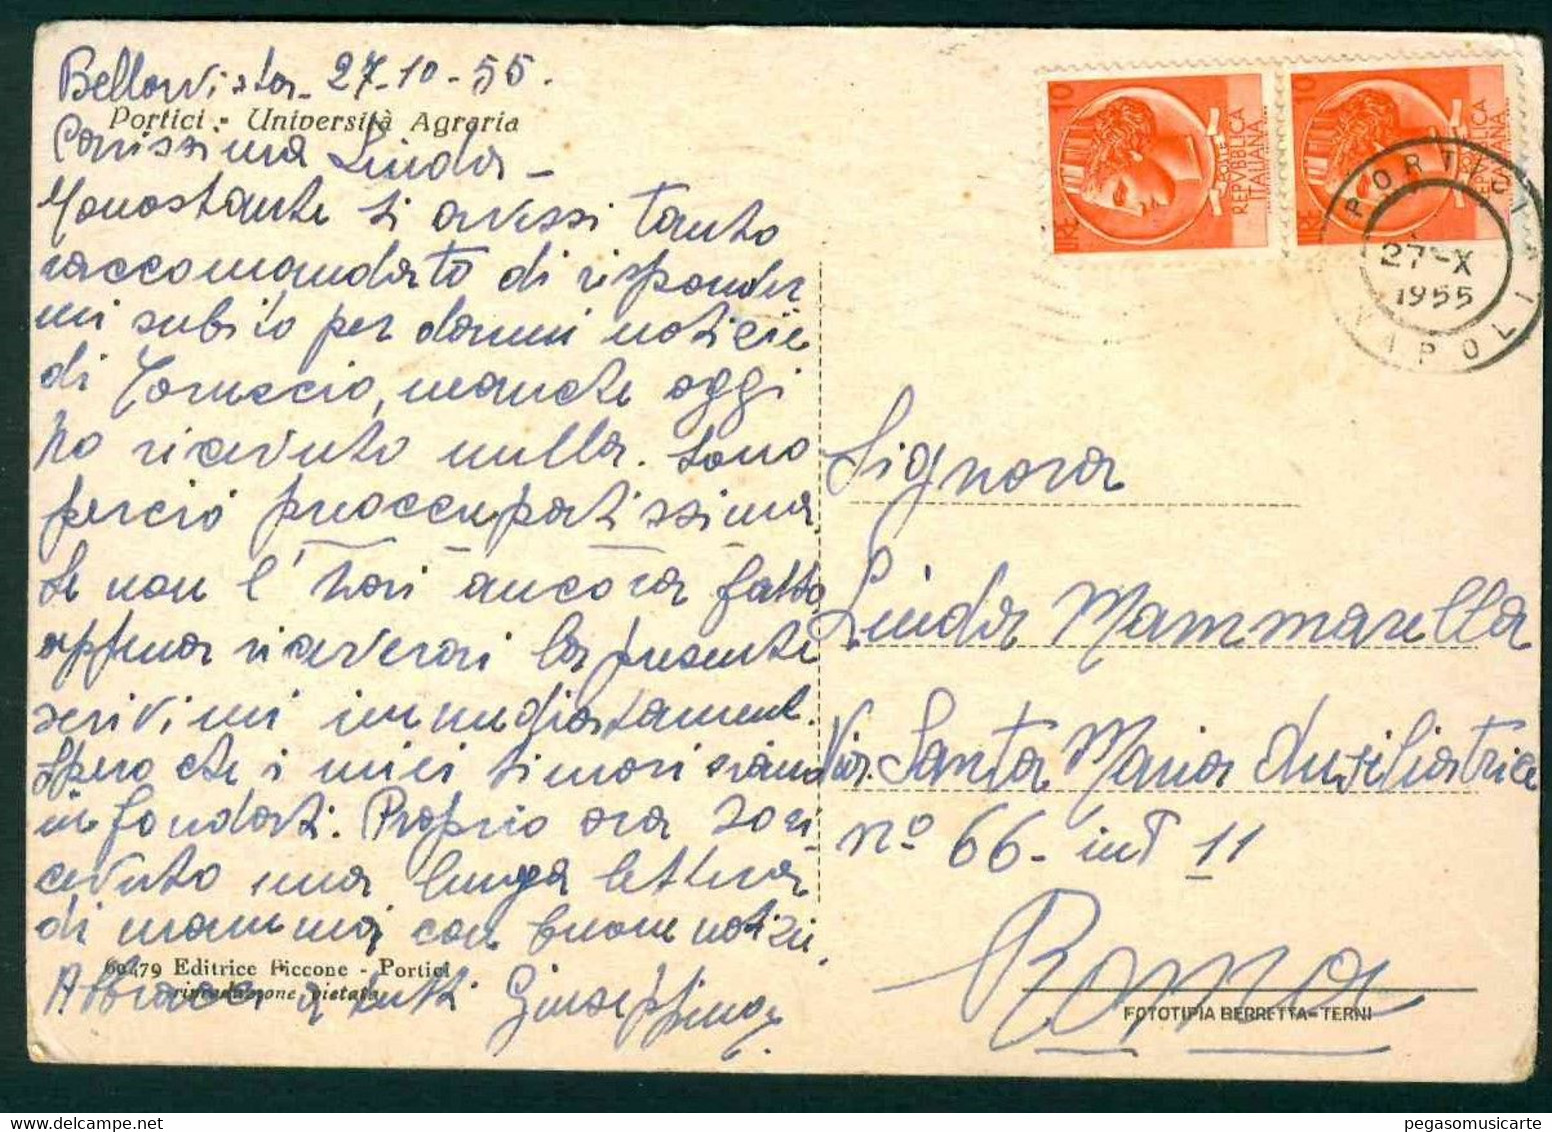 Bellavista - 27-10-55.
Portici - Università Agraria
Carissima Linda -
Nonostante ti avessi tanto
raccomandato di risponder
mi subito per darmi notizie
di                 , manche oggi
ho ricevuto nulla. Sono
perciò preoccupatissima.
Se non l'hai ancora fatto
appena riceverai la presente
scrivimi immediatament.
Spero che i miei timori siano
infondati. Proprio ora ho ri-
cevuto una lunga lettera
di mamma con buone notizie.
60479 Editrice Piccone - Portici
riproduzione vietata
Abbracci a tutti Giuseppina
10
LIRE
POSTE
REPVBBLICA
ITALIANA
10
LIRE
REPVBBLICA
ITALIANA
PORTICI
27-X
1955
NAPOLI
Signora
Linda Mammarella
Via Santa Maria Ausiliatrice
n° 66 - int 11
Roma
FOTOTIPIA BERRETTA - TERNI
pegasomusicarte